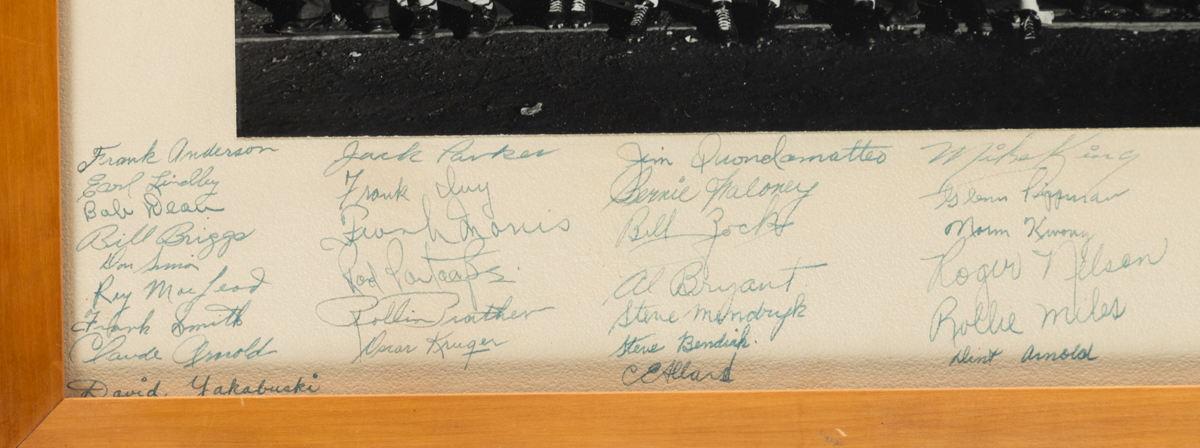 Frank Anderson
Earl Lindley
Bob Dean
Bill Briggs
Don Simon
Ray MacLeod
Frank Smith
Claude Arnold
David. Yakabuski
Jack Parker
Frank Ivy
Frank Morris
Rod Pantages
Rollin Prather
Oscar Kruger
Jim Quondamatteo
Bernie Faloney
Bill Zock
Al Bryant
Steve Mendryk
Steve Bendiak.
C E Allard
Mike King
Glenn Lippman
Norm Kwong
Roger Nelson
Rollie Miles
Arnold